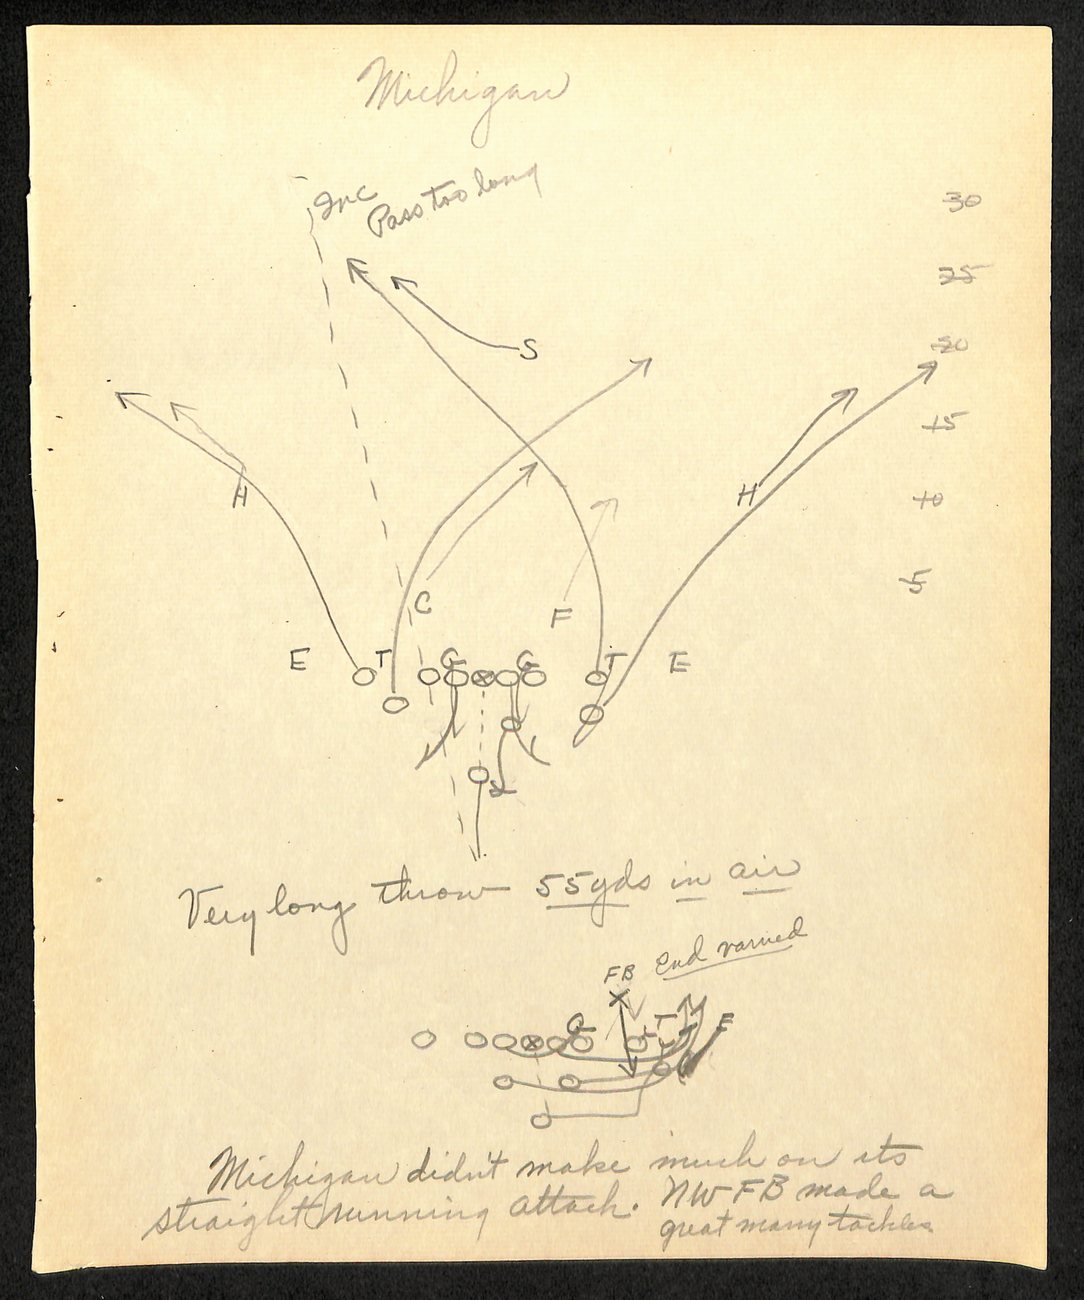 Michigan
Inc
Pass too long
30
25
S
20
15
H
H
10
5
C
F
E T G G T E
Very long throw 55yds in air
FB End varied
G T E
T
Michigan didn't make much on its
straight running attack. NW FB made a
great many tackles